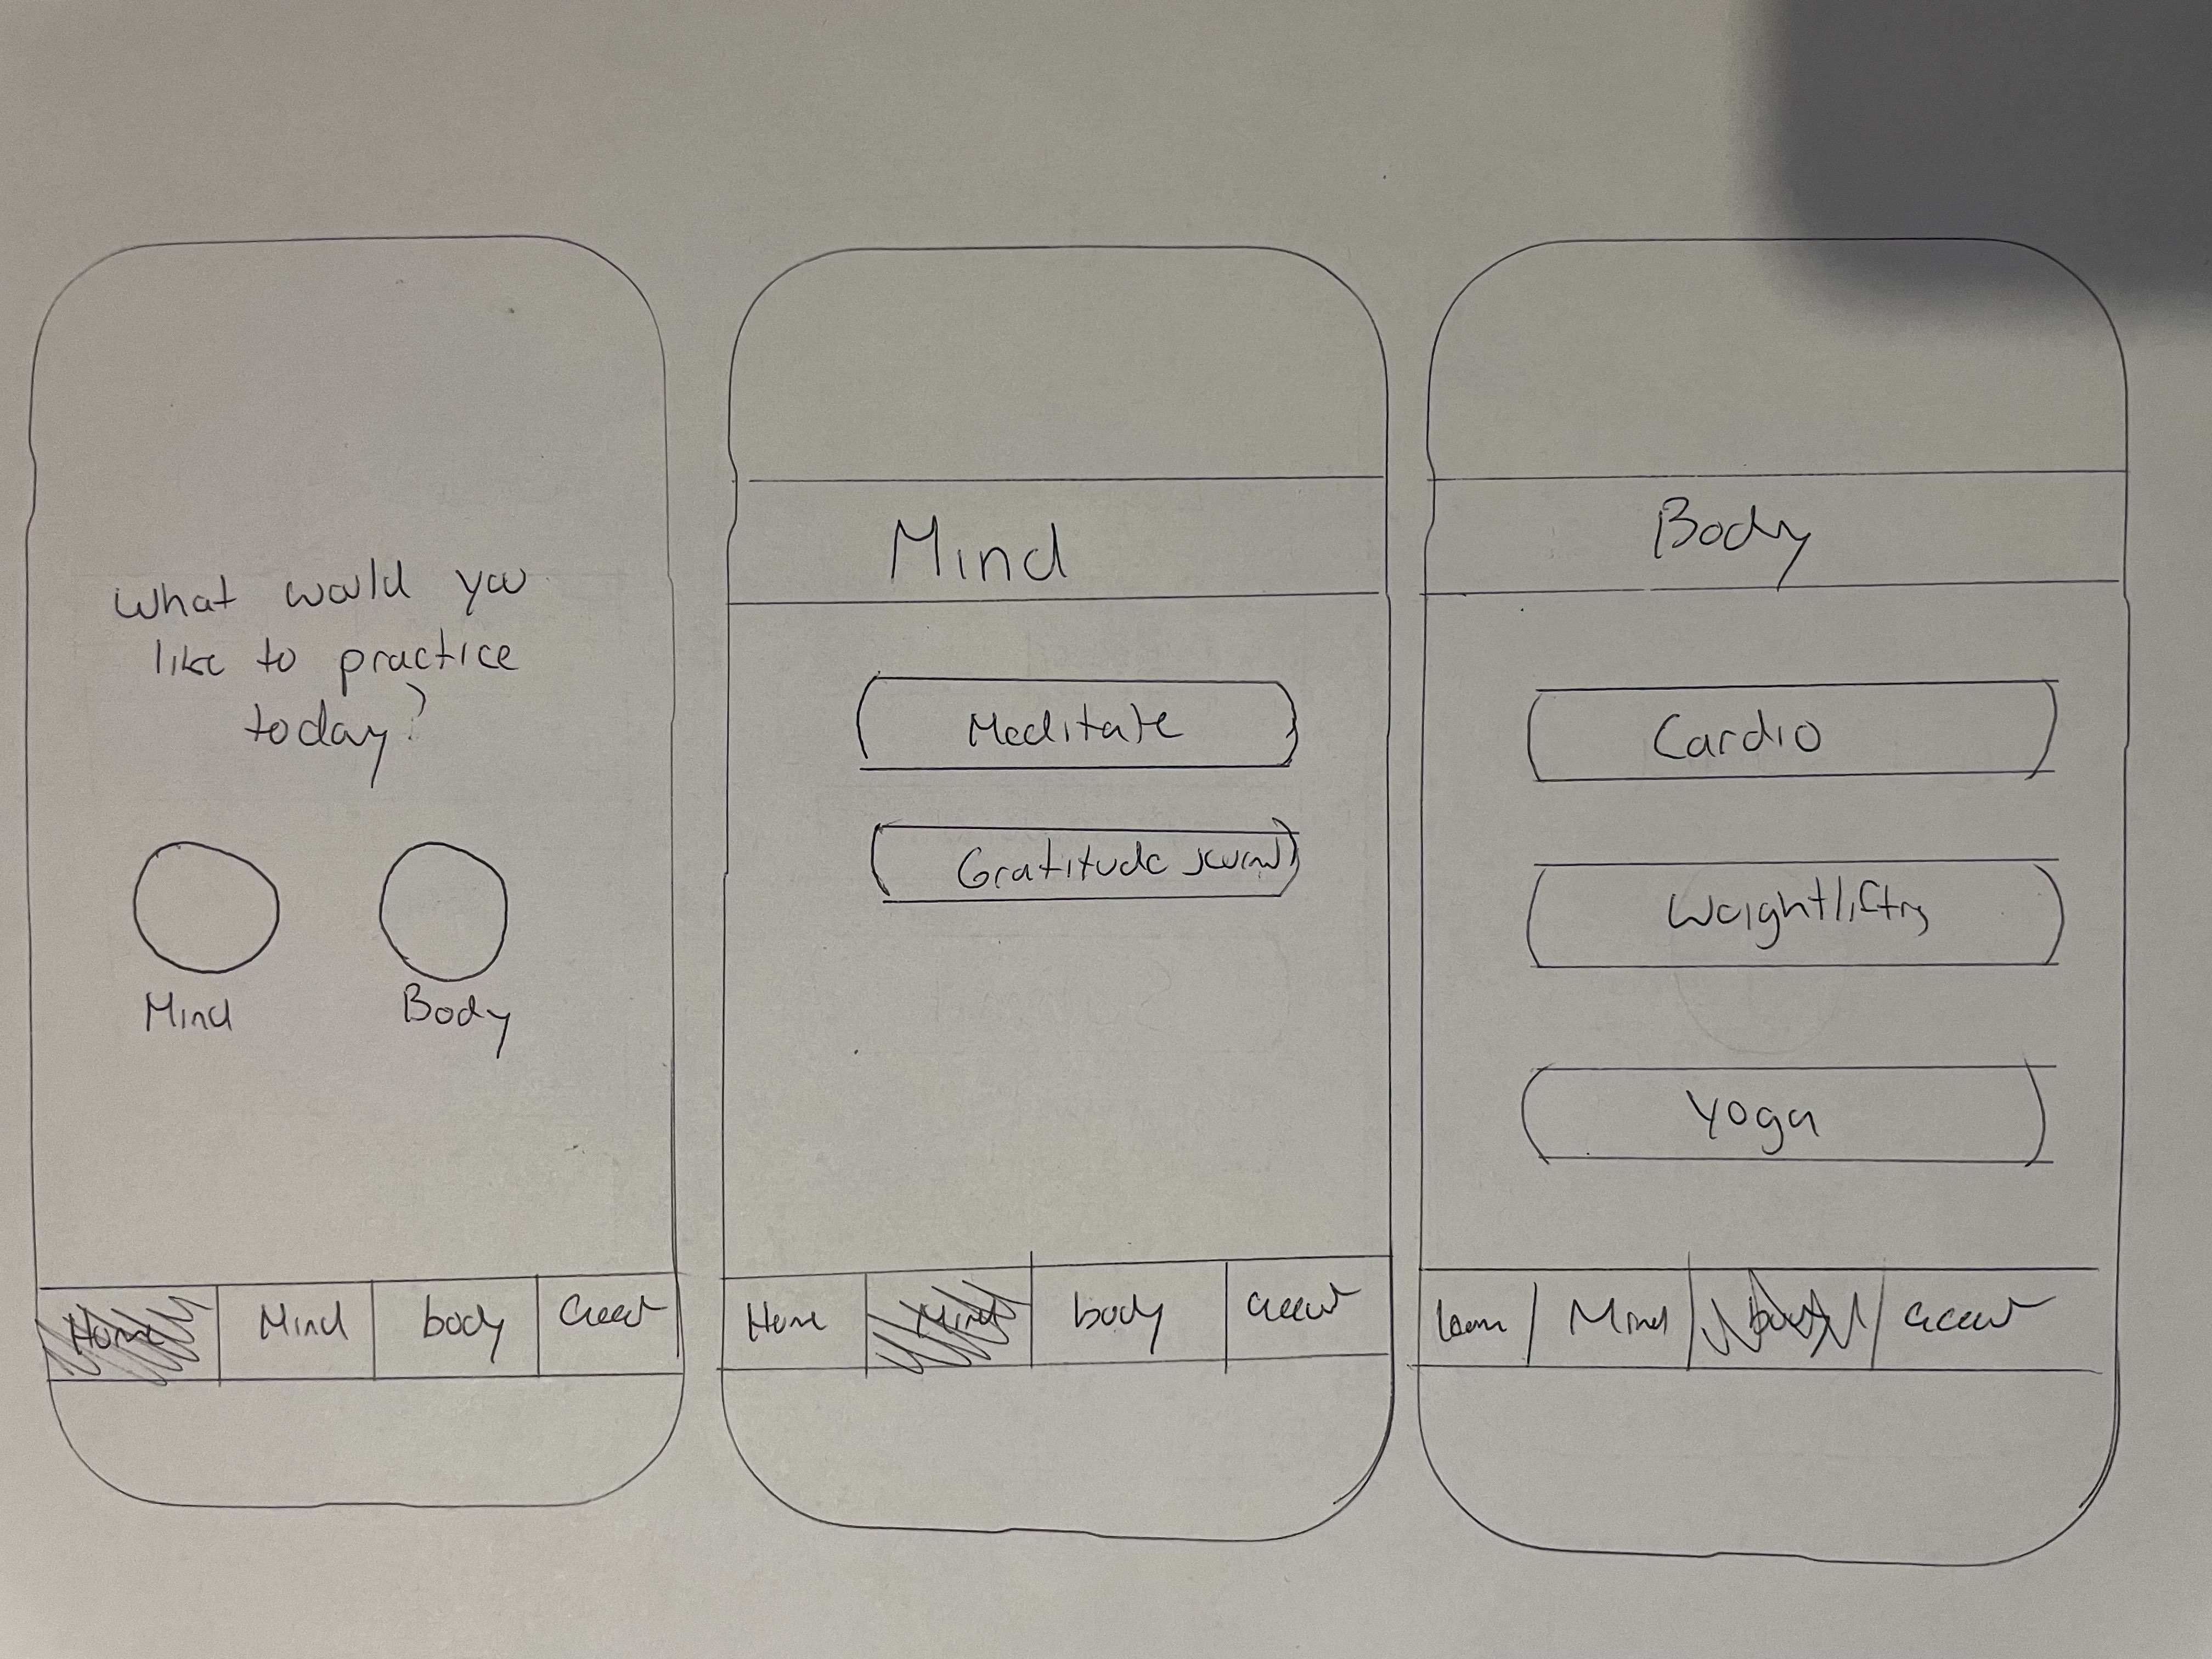 What would you
like to practice
today?
Mind Body
Home Mind body
Mind
Meditate
Gratitude
Home Mind body
Body
Cardio
Weightlifting
Yoga
Mind body